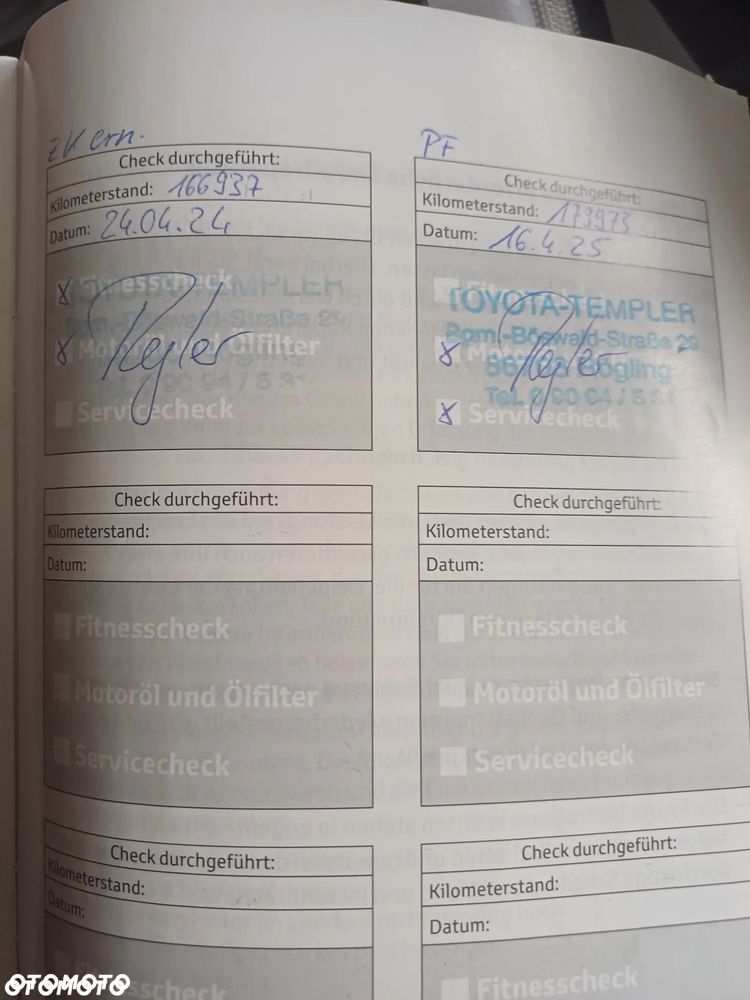 ZK ern.
Check durchgeführt:
Kilometerstand: 166937
Datum: 24.04.24
x Fitnesscheck
x Motoröl und Ölfilter
Servicecheck
TOYOTA-TEMPLER
Bgm.-Böswald-Straße 29
Tel. 0 90 94 / 5 31
PF
Check durchgeführt:
Kilometerstand: 179973
Datum: 16.4.25
TOYOTA-TEMPLER
Bgm.-Böswald-Straße 29
Tel. 0 90 94 / 5 31
x
x Servicecheck
Check durchgeführt:
Kilometerstand:
Datum:
Fitnesscheck
Motoröl und Ölfilter
Servicecheck
Check durchgeführt:
Kilometerstand:
Datum:
Fitnesscheck
Motoröl und Ölfilter
Servicecheck
Check durchgeführt:
Kilometerstand:
Datum:
Fitnesscheck
Check durchgeführt:
Kilometerstand:
Datum:
Fitnesscheck
OTOMOTO
OTOMOTO